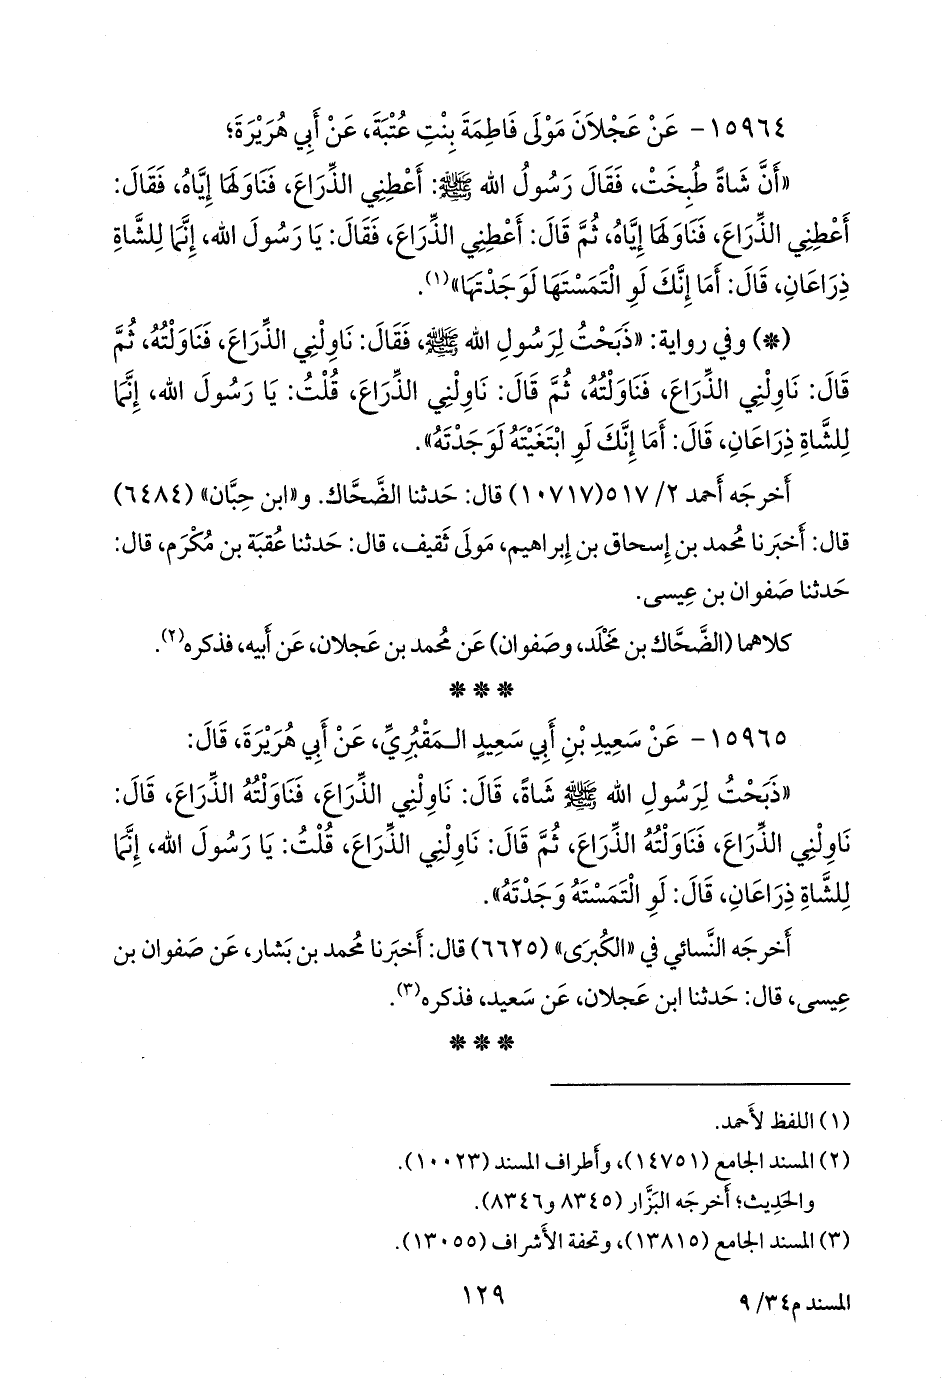 ١٥٩٦٤- عَنْ عَجْلاَنَ مَوْلَى فَاطِمَةَ بِنْتِ عُتْبَةَ، عَنْ أَبِي هُرَيْرَةَ؛
«أَنَّ شَاةً طُبِخَتْ، فَقَالَ رَسُولُ الله ﷺ: أَعْطِنِي الذِّرَاعَ، فَنَاوَلَهَا إِيَّاهُ، فَقَالَ:
أَعْطِنِي الذِّرَاعَ، فَنَاوَلَهَا إِيَّاهُ، ثُمَّ قَالَ: أَعْطِنِي الذِّرَاعَ، فَقَالَ: يَا رَسُولَ الله، إِنَّمَا لِلشَّاةِ
ذِرَاعَانِ، قَالَ: أَمَا إِنَّكَ لَوِ الْتَمَسْتَهَا لَوَجَدْتَهَا»(١).
(*) وفي رواية: «ذَبَحْتُ لِرَسُولِ الله ﷺ، فَقَالَ: نَاوِلْنِي الذِّرَاعَ، فَنَاوَلْتُهُ، ثُمَّ
قَالَ: نَاوِلْنِي الذِّرَاعَ، فَنَاوَلْتُهُ، ثُمَّ قَالَ: نَاوِلْنِي الذِّرَاعَ، قُلْتُ: يَا رَسُولَ الله، إِنَّمَا
لِلشَّاةِ ذِرَاعَانِ، قَالَ: أَمَا إِنَّكَ لَوِ ابْتَغَيْتَهُ لَوَجَدْتَهُ».
أَخرجَه أَحمد ٢/ ٥١٧(١٠٧١٧) قال: حَدثنا الضَّحاك. و«ابن حِبَّان» (٦٤٨٤)
قال: أَخبَرنا مُحمد بن إِسحاق بن إِبراهيم، مَولَى ثَقيف، قال: حَدثنا عُقبَة بن مُكْرَم، قال:
حَدثنا صَفوان بن عِيسى.
كلاهما (الضَّحَّاك بن مَخْلَد، وصَفوان) عَن مُحمد بن عَجلان، عَن أَبيه، فذكره(٢).
* * *
١٥٩٦٥- عَنْ سَعِيدِ بْنِ أَبِي سَعِيدٍ الـمَقْبُرِيِّ، عَنْ أَبِي هُرَيْرَةَ، قَالَ:
«ذَبَحْتُ لِرَسُولِ الله ﷺ شَاةً، قَالَ: نَاوِلْنِي الذِّرَاعَ، فَنَاوَلْتُهُ الذِّرَاعَ، قَالَ:
نَاوِلْنِي الذِّرَاعَ، فَنَاوَلْتُهُ الذِّرَاعَ، ثُمَّ قَالَ: نَاوِلْنِي الذِّرَاعَ، قُلْتُ: يَا رَسُولَ الله، إِنَّمَا
لِلشَّاةِ ذِرَاعَانِ، قَالَ: لَوِ الْتَمَسْتَهُ وَجَدْتَهُ».
أَخرجَه النَّسائي في «الكُبرَى» (٦٦٢٥) قال: أَخبَرنا مُحمد بن بَشار، عَن صَفوان بن
عِيسى، قال: حَدثنا ابن عَجلان، عَن سَعيد، فذكره(٣).
* * *
(١) اللفظ لأَحمد.
(٢) المسند الجامع (١٤٧٥١)، وأَطراف المسند (١٠٠٢٣).
والحَدِيث؛ أَخرجَه البَزَّار (٨٣٤٥ و٨٣٤٦).
(٣) المسند الجامع (١٣٨١٥)، وتحفة الأَشراف (١٣٠٥٥).
١٢٩
المسند م٣٤/ ٩